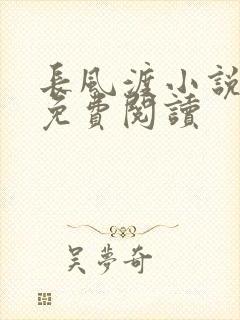 長風渡小說
免費閱讀
吴夢奇